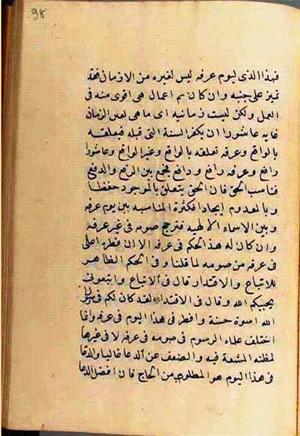 ٩٨
فهذا الذي ليوم عرفه ليس لغيره من الازمان فقد
تميز على جنسه وان كان ثم اعمال هي اقوى منه في
العمل ولكن ليست زمانية اى ما هي لعين الزمان
غايه عاشورا ان يكفر السنة التي قبله فيعلقه
بالواقع وعرفه تعلقه بالواقع وغير الواقع وعاشورا
رافع وعرفه رافع ودافع فجمع بين الرفع والدفع
فناسب الحق فان الحق يتعلق بالموجود حفظا
وبالمعدوم ايجادا فكثرة المناسبه بين يوم عرفه
وبين الاسماء الالهية فترجح صومه في غير عرفه
وان كان له هذا الحكم في عرفه الا ان فطره اعلى
في عرفه من صومه لما قلناه في الحكم الظاهر
للاتباع والاقتداء قال في الاتباع واتبعوني
يحببكم الله وقال في الاقتداء لقد كان لكم في رسول
الله اسوة حسنة وافطر في هذا اليوم في عرفه وانما
اختلف علماء الرسوم في صومه في عرفه لا في غيرها
لمظنه المشقة فيه والضعف عن الدعا غالبا والدعا
في هذا اليوم هو المطلوب من الحاج فان افضل الدعا